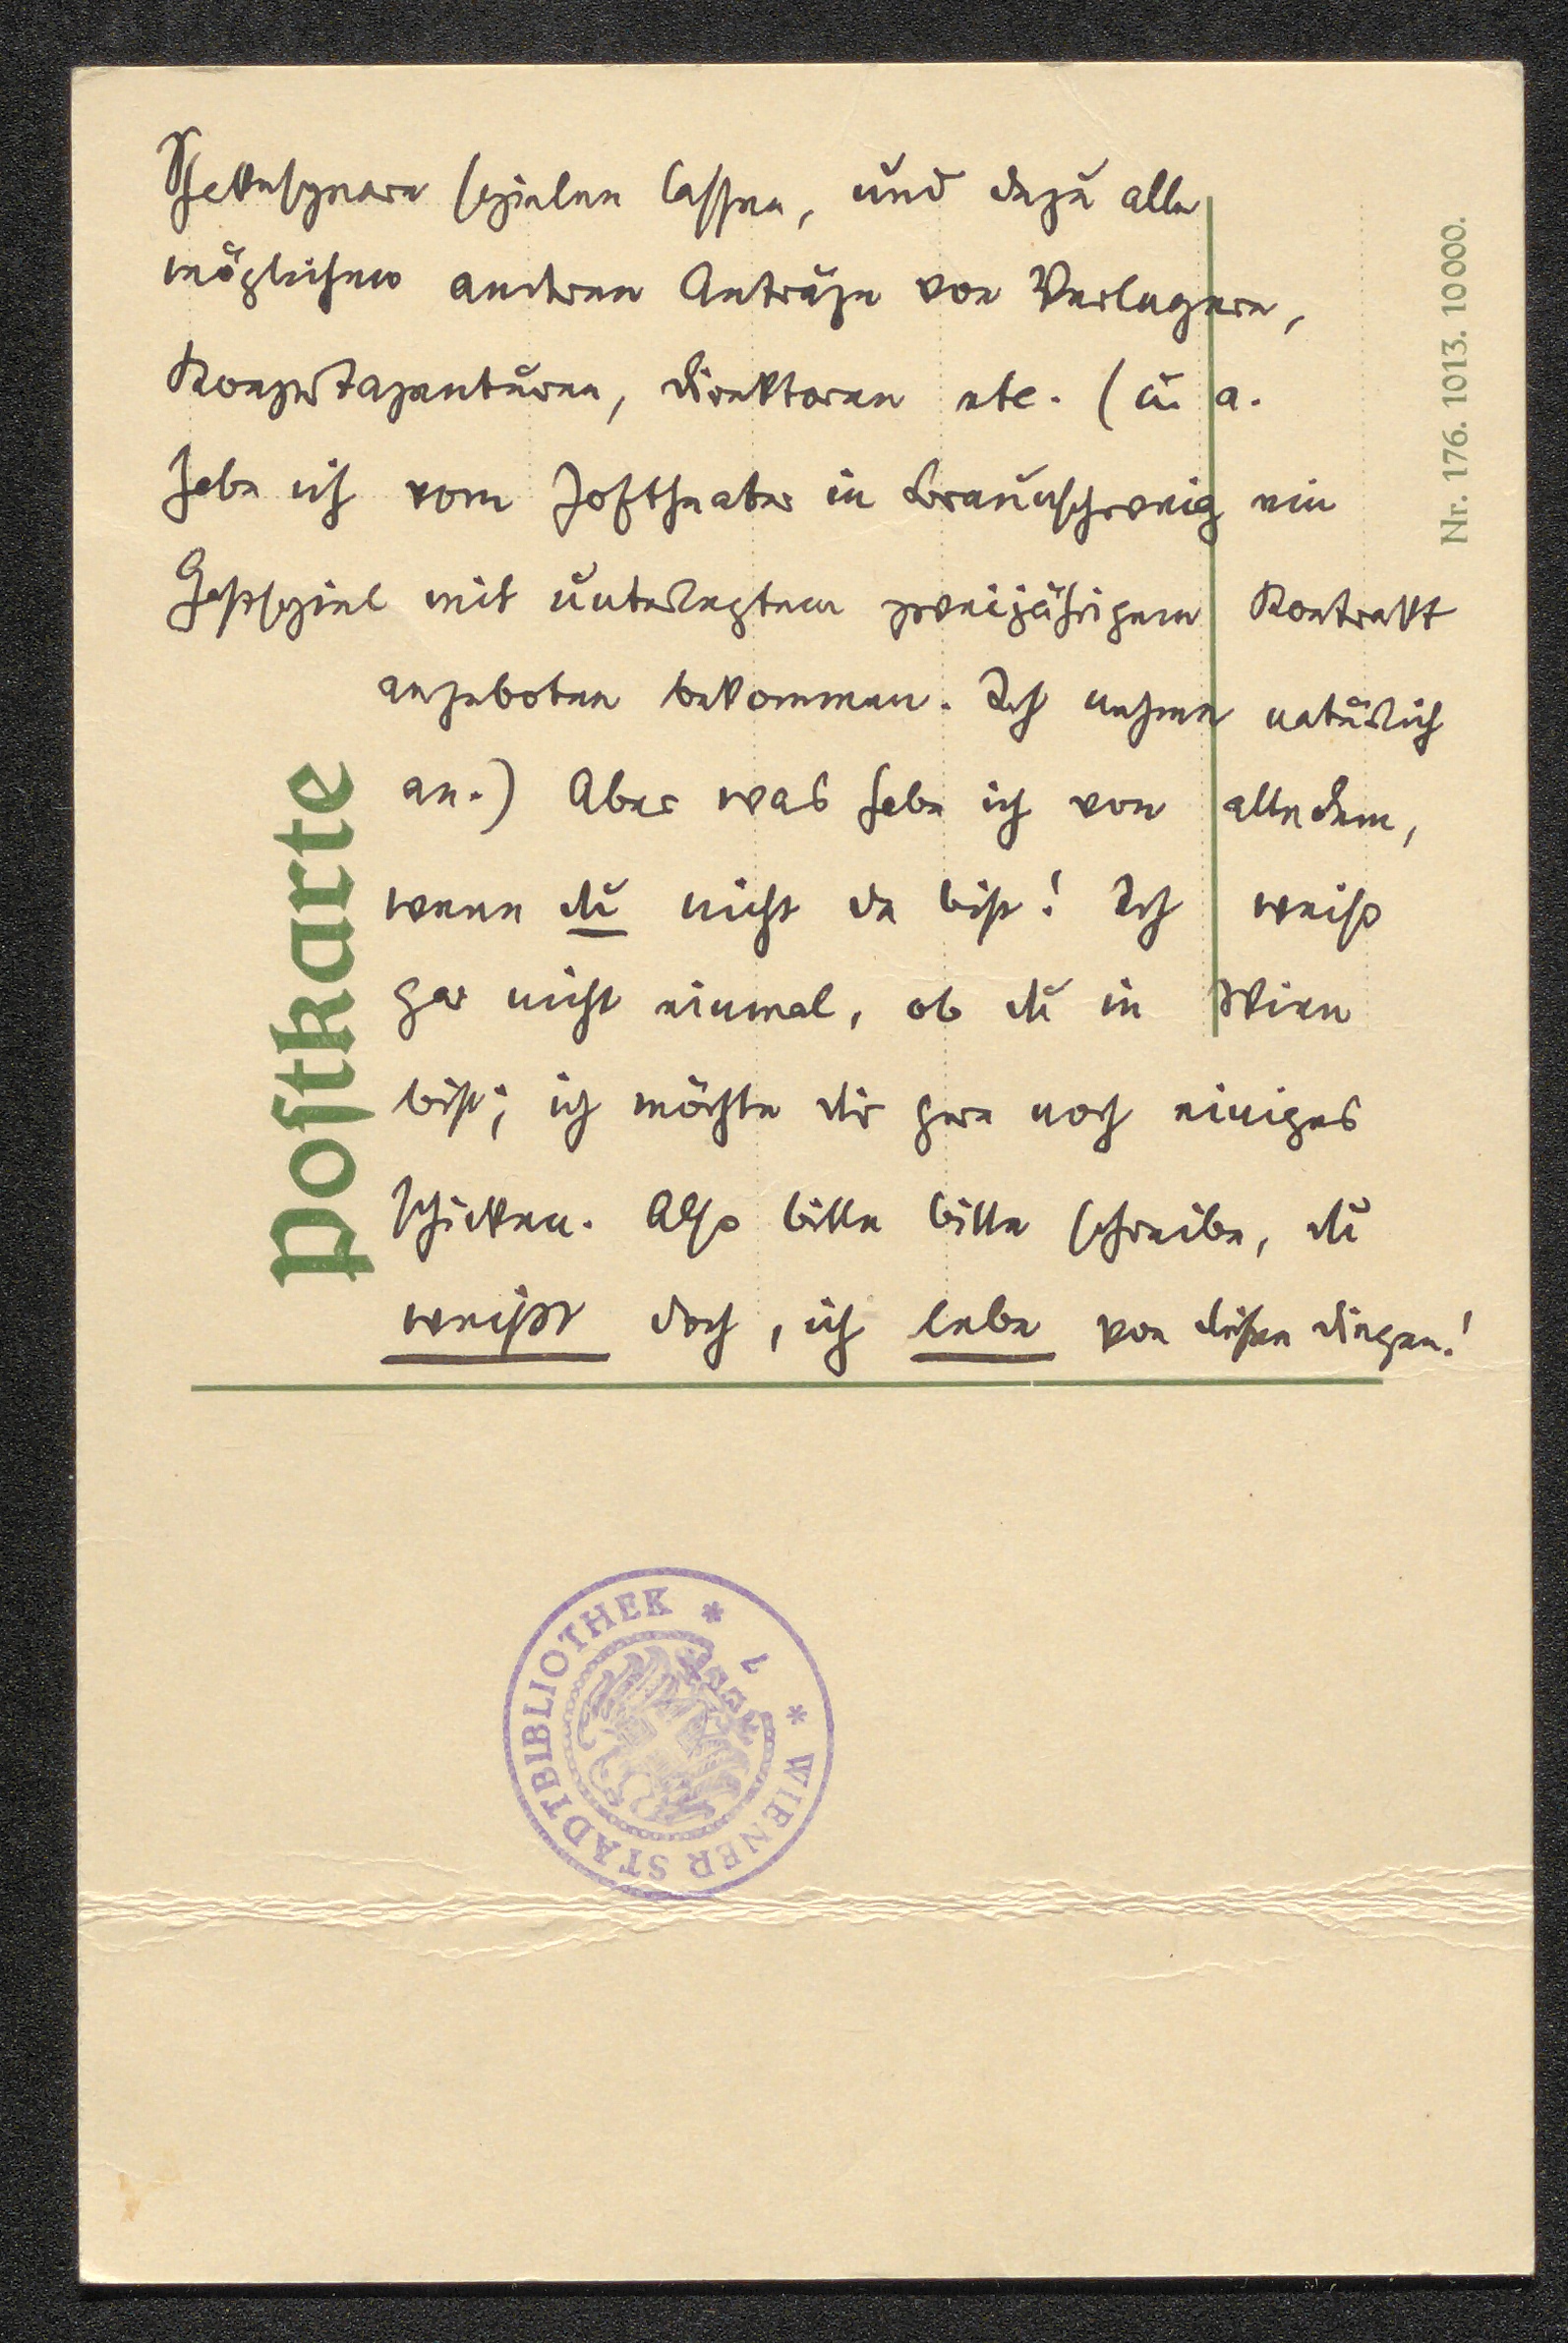 Shakespeare spielen lassen, und dazu alle
möglichen anderen Anträge von Verlegern,
Konzertagenturen, Direktoren etc. (u. a.
habe ich vom Hoftheater in Braunschweig ein
Gastspiel mit unterlegtem zweijährigem Kontrakt
angeboten bekommen. Ich nehme natürlich
an.) Aber was habe ich von alledem,
wenn du nicht da bist! Ich weiss
gar nicht einmal, ob du in Wien
bist; ich möchte dir gern noch einiges
schicken. Also bitte bitte schreibe, du
weisst doch, ich lebe von diesen Dingen!
Postkarte
Nr. 176. 1013. 10000.
* WIENER STADTBIBLIOTHEK * 1